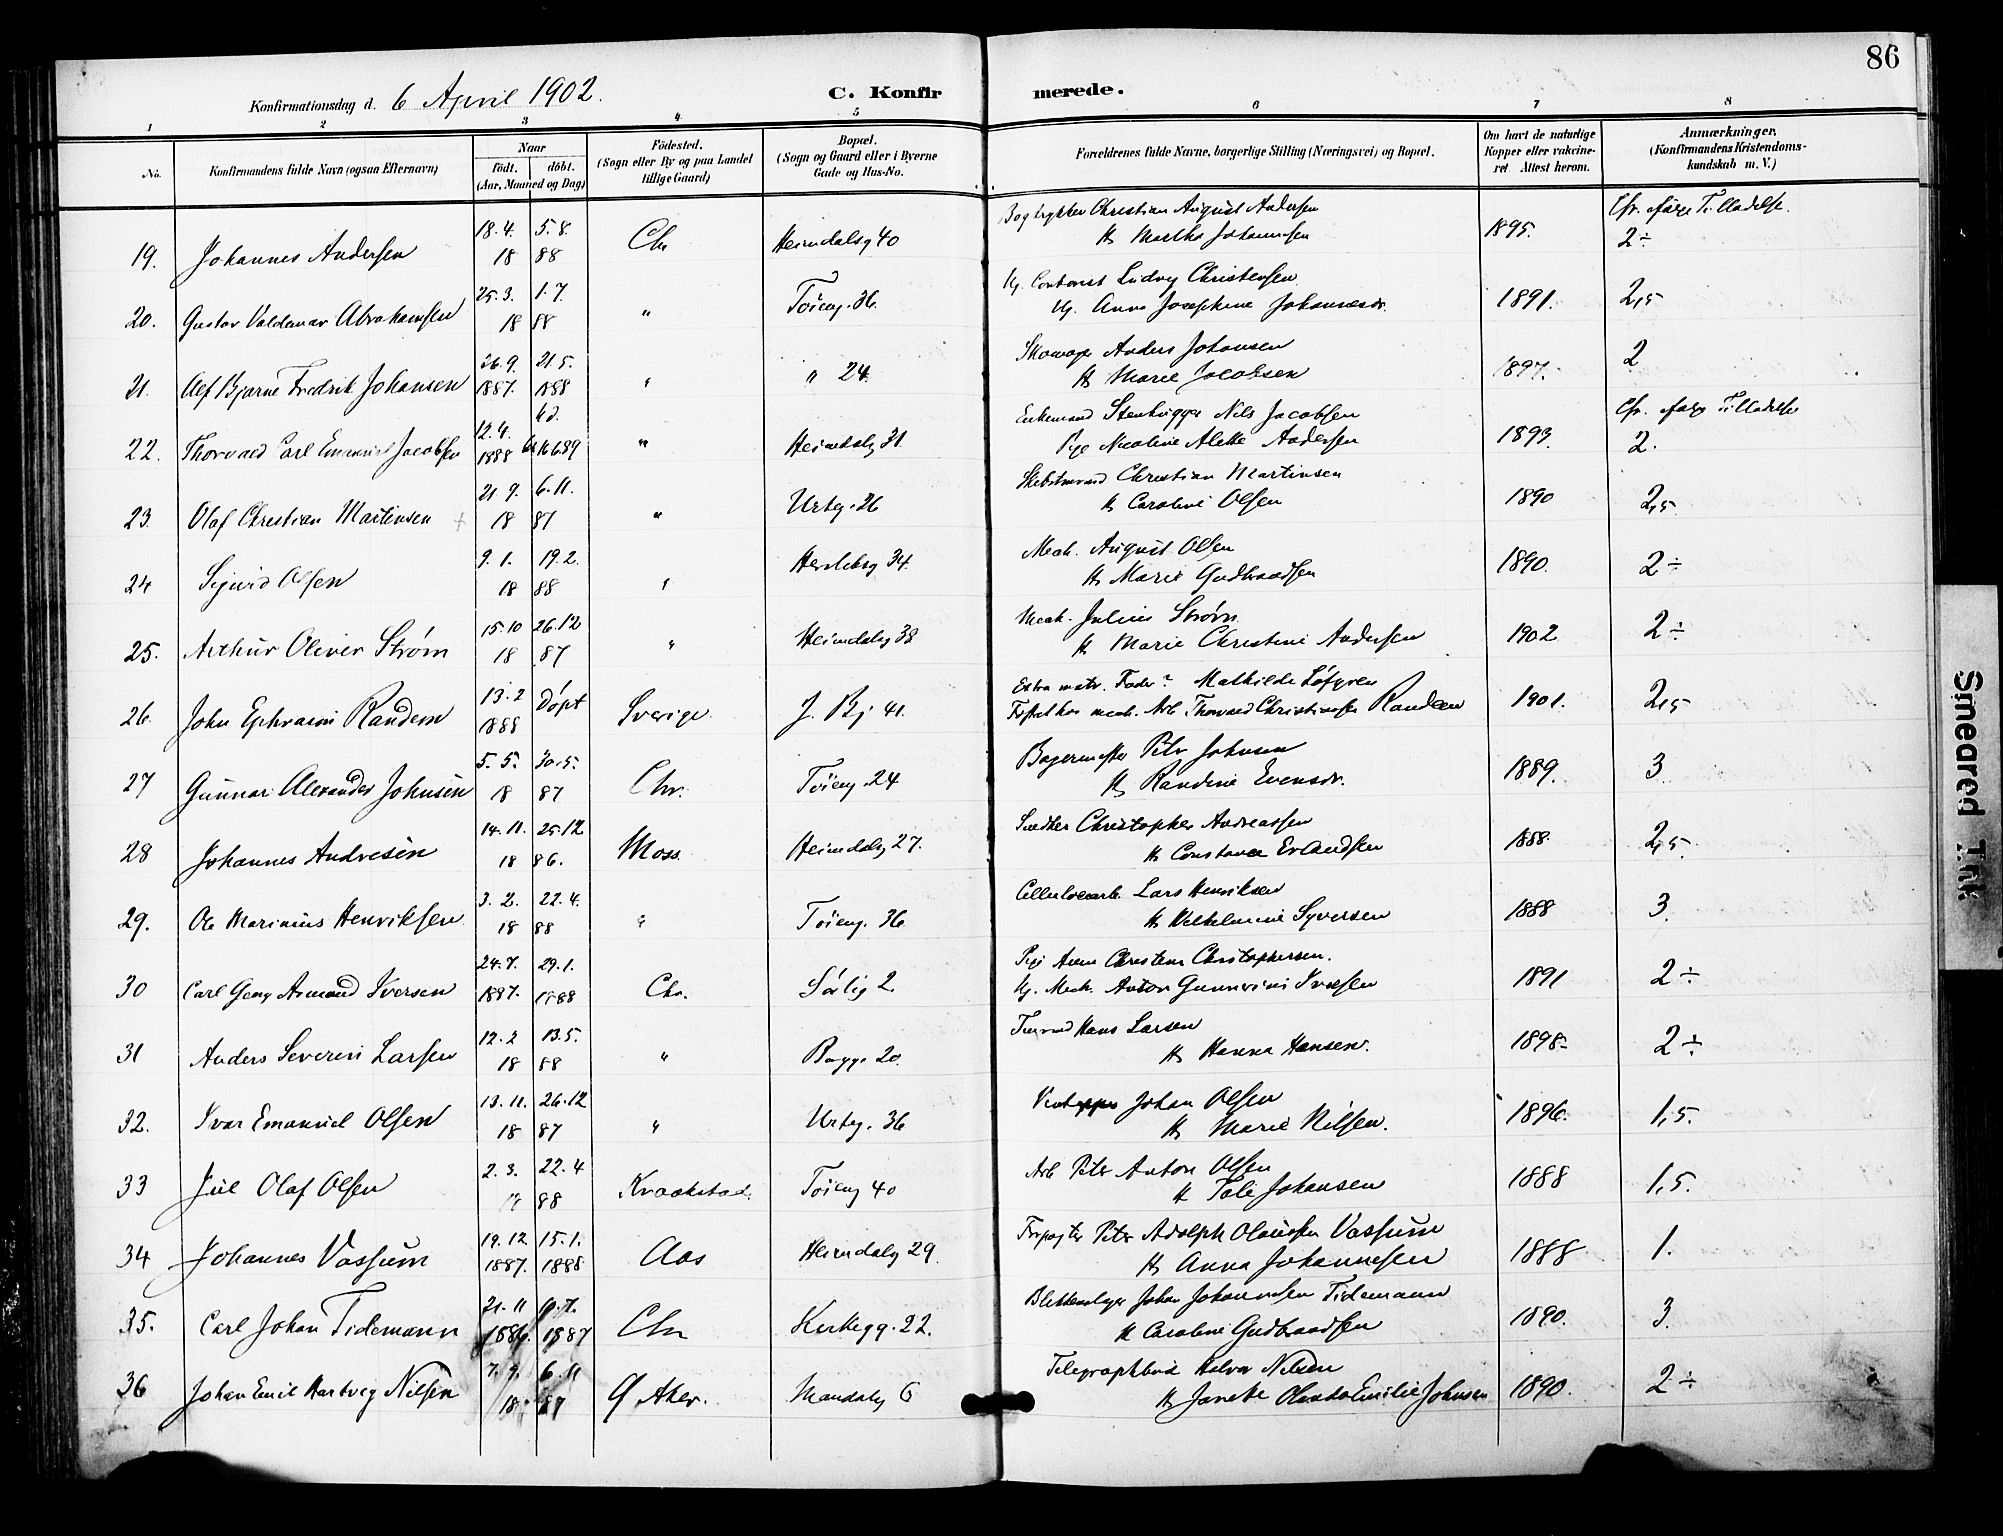 86
Konfirmationsdag d. 6 April 1902.
C. Konfirmerede.
1 2 3 4 5 6 7 8
No.
Konfirmandens fulde Navn (ogsaa Efternavn)
Naar
født. døbt.
(Aar, Maaned og Dag)
Födested.
(Sogn eller By og paa Landet
tillige Gaard)
Bopæl.
(Sogn og Gaard eller i Byerne
Gade og Hus-No.
Forældrenes fulde Navne, borgerlige Stilling (Næringsvei) og Bopæl.
Om havt de naturlige
Kopper eller vakcine-
ret. Attest herom.
Anmærkninger.
(Konfirmandens Kristendoms-
kundskab m. V.)
18.4. 5.8. Bogtrykker Christian August Andersen Tilladelse.
19. Johannes Andersen 18 88 Chr Heimdalsg 40 H. Martha Johannesen 1895. 2÷
25.3. 1.7. Ug. Contorist Ludvig Christensen
20. Gustav Valdemar Abrahamsen 18 88 " Töieng. 36 Ug. Anna Josephine Johannesdr. 1891. 2,5
26.9. 21.5. Skomager Anders Johansen
21. Alf Bjarne Fredrik Johansen 1887. 1888 " " 24. H. Marie Jacobsen 1897. 2
12.4. Enkemand Stenhugger Nils Jacobsen Tilladelse
22. Thorvald Carl Emanuel Jacobsen 1888 " Heimdalsg 31 Pige Nicoline Alette Andersen 1893. 2.
21 9. 6.11. Christian Martinsen
23. Olaf Christian Martinsen + 18 87 " Urteg. 26 H Caroline Olsen 1890 2,5
9.1. 19.2. Mech. August Olsen
24 Sigurd Olsen 18 88 " Herslebsg 34. H. Marie Gudbrandsen 1890. 2÷
15.10 26.12 Mech. Julius Strøm
25. Arthur Oliver Strøm 18 87 " Heimdalsg 38 H. Marie Christine Andersen 1902 2÷
13.2 Döpt Extra matr. Fader? Mathilde Löfgren
26. John Ephraim Randem 1888 Sverige. J. Bj 41. mech. Arb Thorvald Christiansen Randem 1901. 2,5
5.5. 30.5. Bagermester Peter Johnsen
27 Gunnar Alexander Johnsen 18 87 Chr. Töieng. 24 H. Randine Evensdr. 1889. 3
14.11. 25.12 Snedker Christopher Andreassen
28 Johannes Andresen 18 86. Moss. Heimdalsg 27. H. Constance Erlandsen 1888. 2,5
3.2. 22.4. Cellulosearb. Lars Henriksen
29. Ole Marinius Henriksen 18 88 " Töieng. 36 H. Vilhelmine Syversen 1888 3.
24.7. 29.1. Pige Anne Christine Christophersen.
30 Carl Georg Armand Iversen 1887. 1888 Chr. Sörlig 2. Ug. Mech. Anton Gunnerius Iversen 1891 2÷
12.2 13.5. Hans Larsen
31 Anders Severin Larsen 18 88 " Bagge 20. H. Hanna Hansen. 1898. 2÷
13.11. 26.12 Johan Olsen
32. Ivar Emanuel Olsen 18 87 " Urteg. 36 H. Marie Nilsen. 1896. 1,5.
2.3. 22.4 Arb Peter Anton Olsen
33 Jul Olaf Olsen 18 88 Kraakstad. Töieng 40 H Tale Johansen 1888 1,5.
19.12 15.1. Forpagter Peter Adolph Olaussen Vassum
34 Johannes Vassum 1887. 1888 Aas Heimdalsg 29. H. Anna Johannesen 1888 1.
21.11 Blikkenslager Johan Johannesen Tidemann
35. Carl Johan Tidemann 1886. 1887 Chr Kirkegg. 22. H Caroline Gudbrandsen 1890. 3.
7.9. 6.11 Telegraphbud Halvor Nilsen
36 Johan Emil Hartvig Nilsen 18 87 Ø Aker. Mandalsg 6 H. Janette Emilie Johnsen 1890. 2÷
Smeared Ink